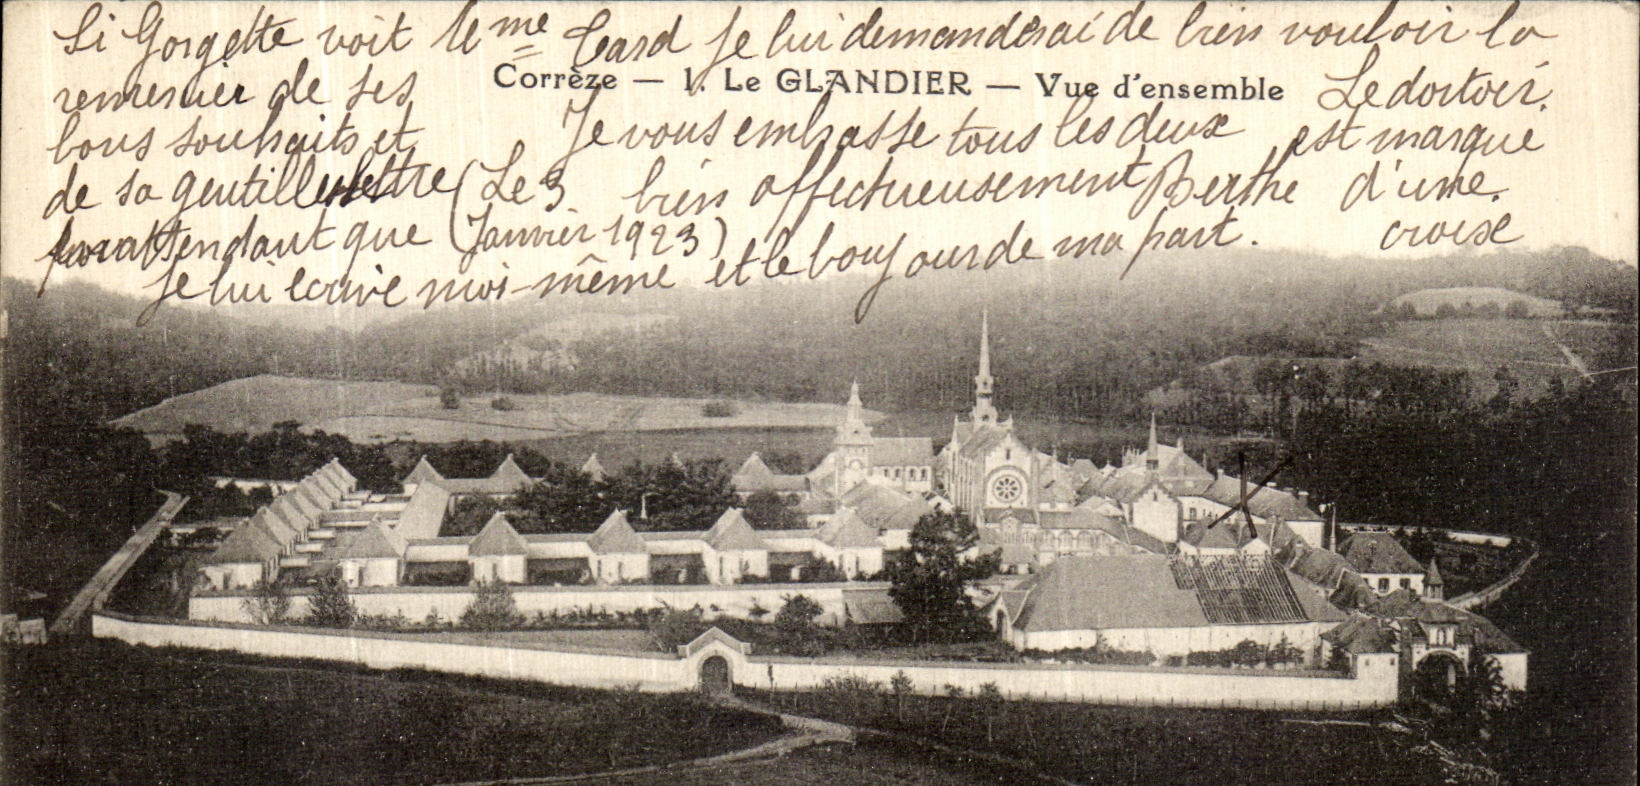 Si Gorgette voit le Mme Card je lui demanderai de bien vouloir la
Corrèze — 1. Le GLANDIER — Vue d'ensemble
remercier de ses
bons souhaits et
de sa gentille lettre
en attendant que
je lui écrive moi-même et le boujour de ma part.
(Le 3
Janvier 1923)
Je vous embrasse tous les deux
bien affectueusement Berthe
Le dortoir
est marqué
d'une
croix